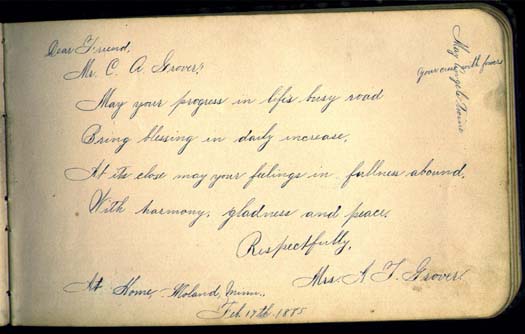 Dear Friend,
Mr. C. A. Grover;
May your progress in life's busy road
Bring blessing in daily increase,
At its close may your feelings in fullness abound,
With harmony, gladness and peace.
Respectfully,
Mrs. A. T. Grover.
At Home, Moland, Minn.,
Feb. 17th. 1885
May Angels
your with